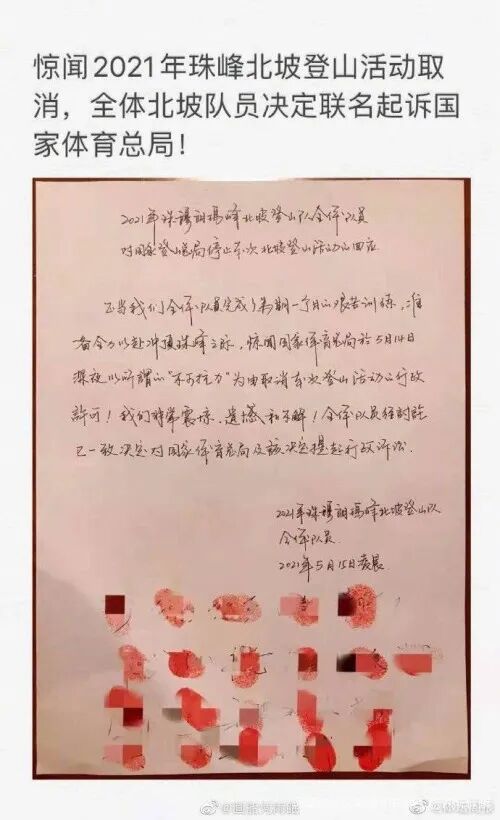 惊闻2021年珠峰北坡登山活动取
消，全体北坡队员决定联名起诉国
家体育总局！
2021年珠穆朗瑪峰北坡登山队全体队员
对国家登山总局停止本次北坡登山活动的回应
正当我们全体队员完成了為期一个月的艰苦训练，准
备全力以赴冲顶珠峰之际，惊闻国家体育总局於5月14日
深夜以所謂的"不可抗力"为由取消本次登山活动的行政
許可！我们非常震惊、遗憾和不解！全体队员经討論
已一致决定对国家体育总局及該决定提起行政诉讼.
2021年珠穆朗瑪峰北坡登山队
全体队员.
2021年5月15日凌晨